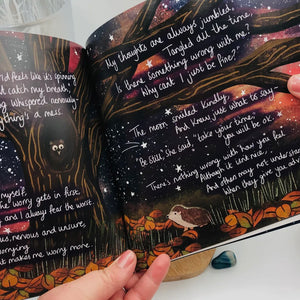 ld feels like it's spinning
t catch my breath,
ng whispered nervously-
rything's a mess.
myself,
he worry gets in first,
and I always fear the worst.
us, nervous and unsure,
worrying
t makes me worry more.
My thoughts are always jumbled,
Tangled all the time,
Is there something wrong with me?
Why can't I just be fine?"
The moon smiled kindly
And knew just what to say-
"Be still," she said, "take your time,
you will be ok.
There's nothing wrong with how you feel
Although it isn't nice,
And others may not understand
When they give you